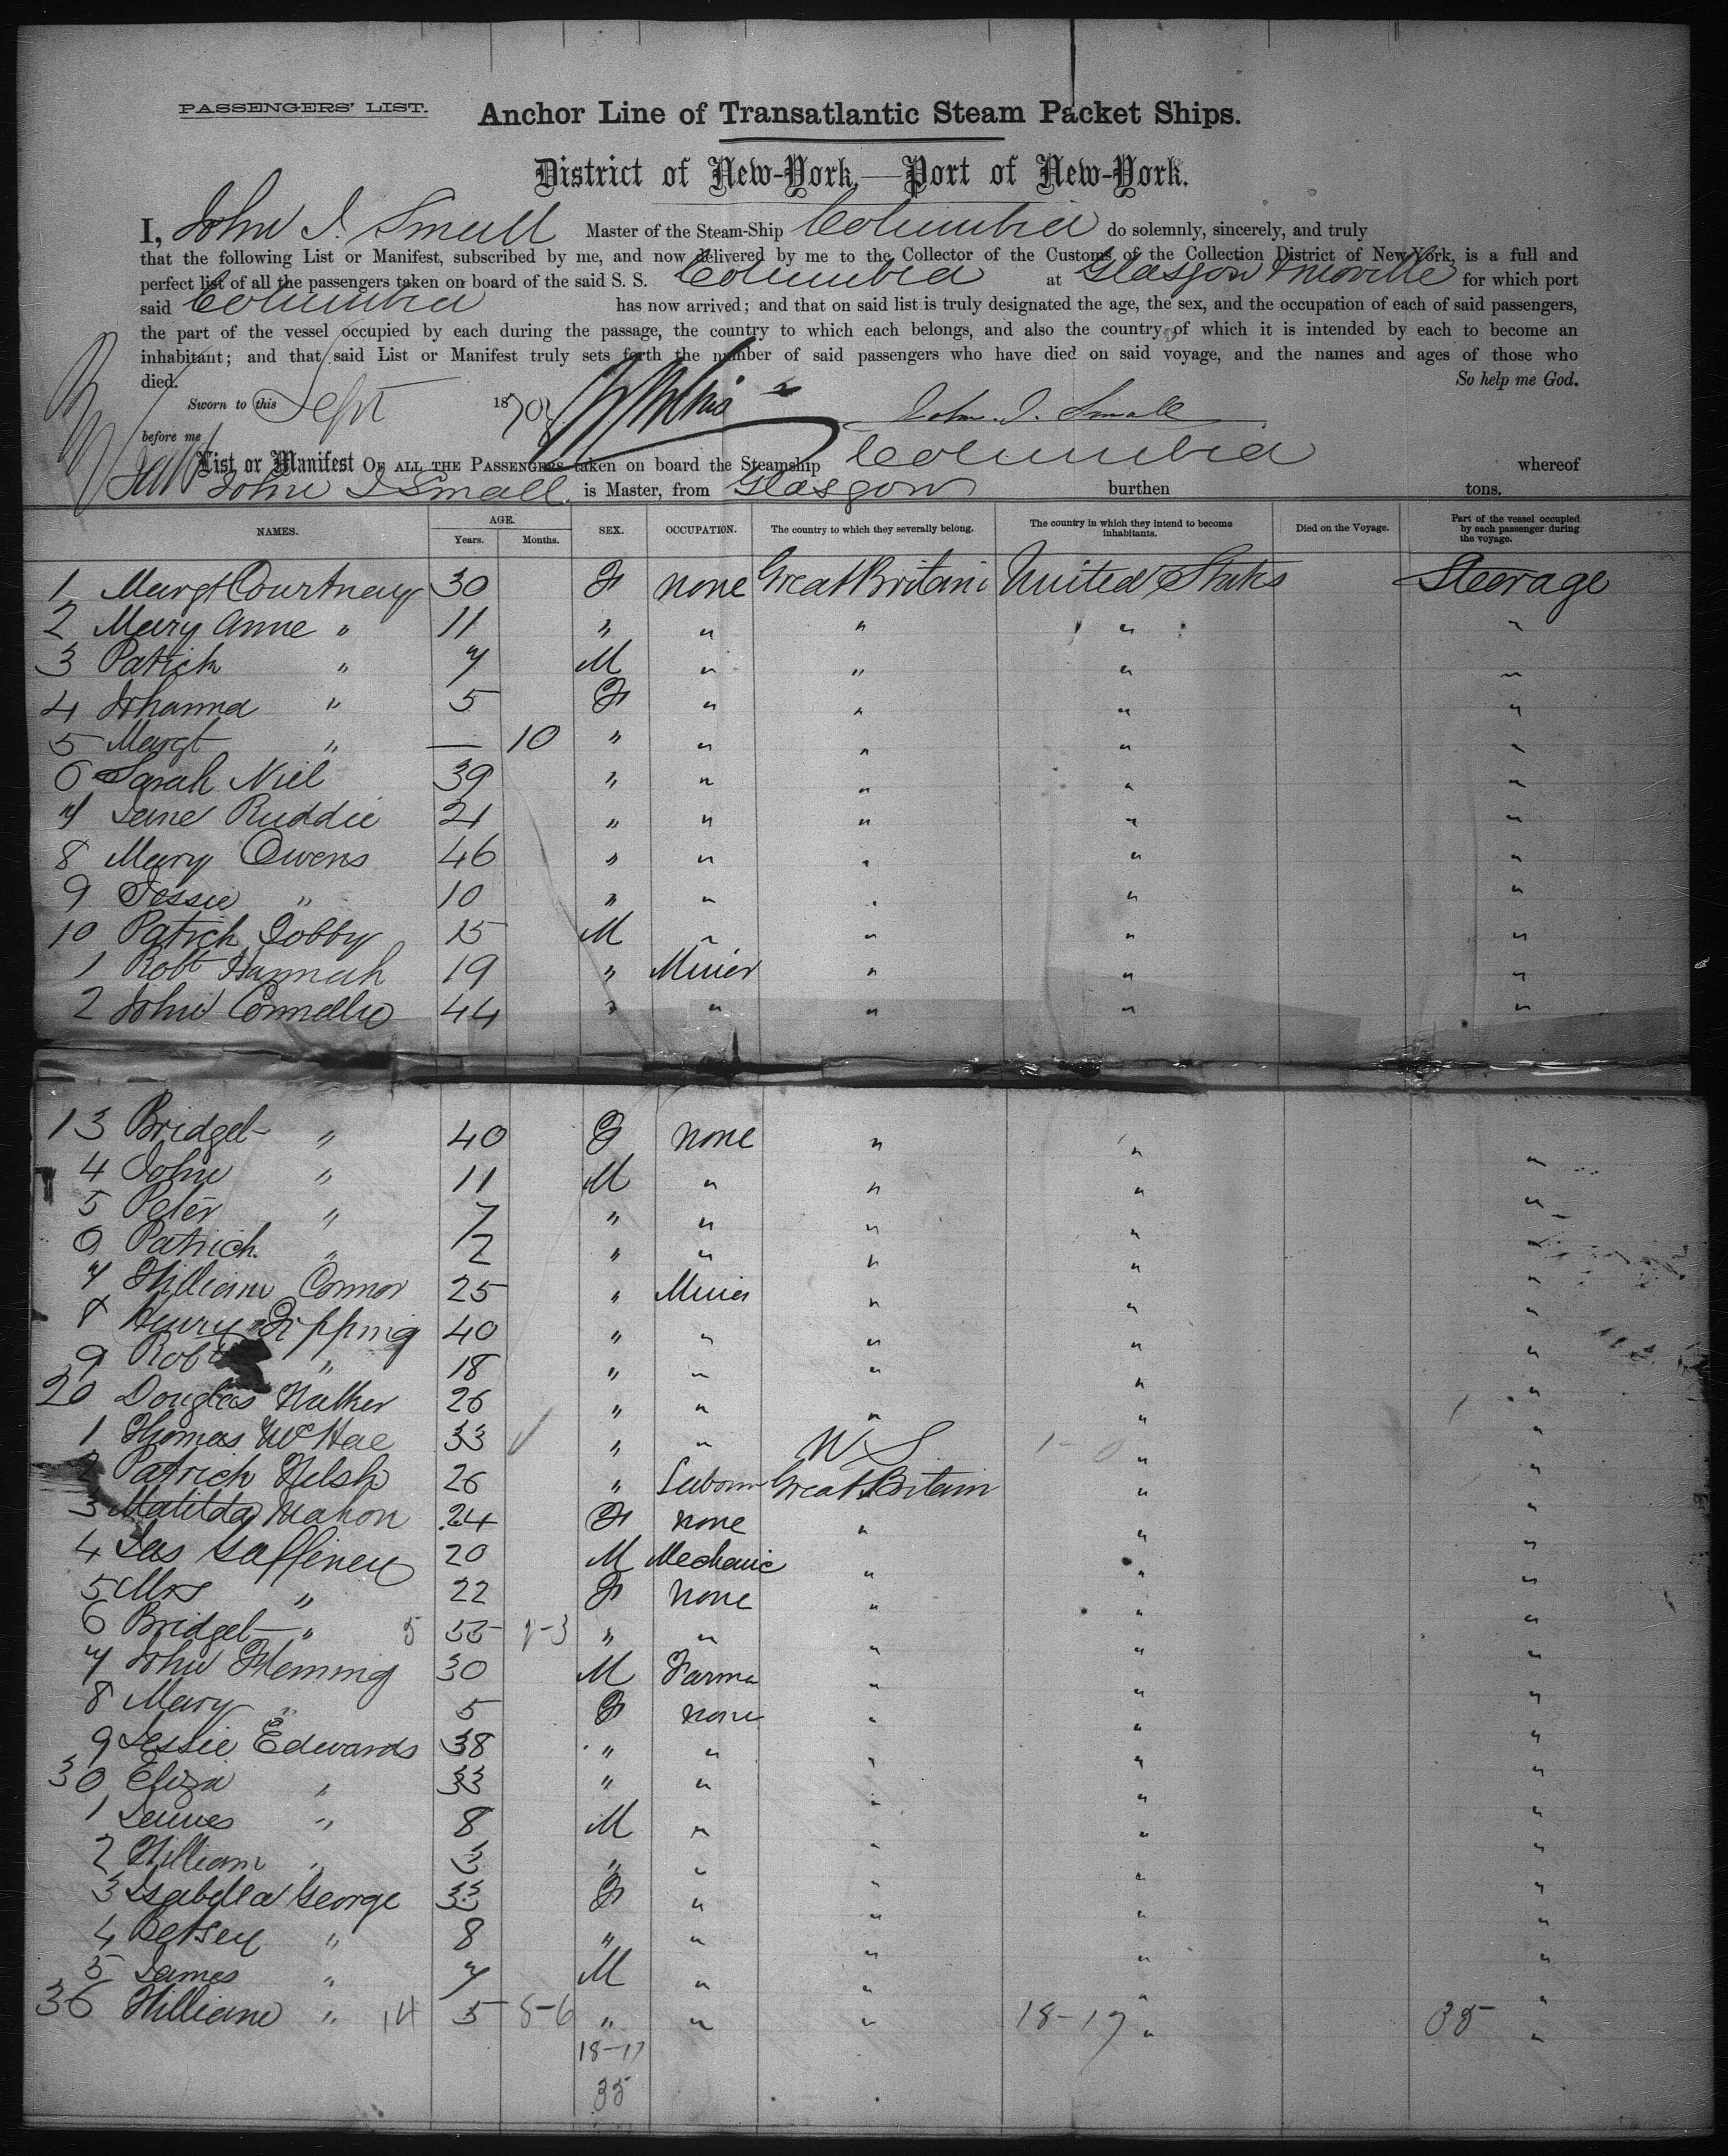 PASSENGERS' LIST.
Anchor Line of Transatlantic Steam Packet Ships.
District of New-York,—Port of New-York.
I, John I. Small Master of the Steam-Ship Columbia do solemnly, sincerely, and truly
that the following List or Manifest, subscribed by me, and now delivered by me to the Collector of the Customs of the Collection District of New York, is a full and
perfect list of all the passengers taken on board of the said S. S. Columbia at Glasgow & Moville for which port
said Columbia has now arrived; and that on said list is truly designated the age, the sex, and the occupation of each of said passengers,
the part of the vessel occupied by each during the passage, the country to which each belongs, and also the country of which it is intended by each to become an
inhabitant; and that said List or Manifest truly sets forth the number of said passengers who have died on said voyage, and the names and ages of those who
died. So help me God.
Sworn to this Sept 1870 John. I. Small
before me
List or Manifest OF ALL THE PASSENGERS taken on board the Steamship Columbia whereof
John I Small is Master, from Glasgow burthen tons.
NAMES. AGE. Years. Months. SEX. OCCUPATION. The country to which they severally belong. The country in which they intend to become inhabitants. Died on the Voyage. Part of the vessel occupied by each passenger during the voyage.
1 Margt Courtnay 30 F none Great Britain United States Steerage
2 Mary Anne " 11 " " " " "
3 Patrick " 7 M " " " "
4 Johanna " 5 F " " " "
5 Margt " — 10 " " " " "
6 Sarah Niel 39 " " " " "
7 Jane Ruddie 21 " " " " "
8 Mary Owens 46 " " " " "
9 Jessie " 10 " " " " "
10 Patrick 15 M " " " "
1 Robt Hannah 19 " Miner " " "
2 John 44 " " " " "
13 Bridget " 40 F none " " "
4 John " 11 M " " " "
5 Peter " 7 " " " " "
6 Patrick " 2 " " " " "
7 William Connor 25 " Miner " " "
8 Henry Tipping 40 " " " " "
9 Robt " 18 " " " " "
20 Douglas Walker 26 " " " " "
1 Thomas 33 " " " "
2 Patrick Welsh 26 " Great Britain " "
3 Matilda Mahon 24 F none " " "
4 Jas Gaffiney 20 M Mechanic " " "
5 Mrs " 22 F none " " "
6 Bridget " 5 " " " " "
7 John Fleming 30 M Farmer " " "
8 Mary " 5 F none " " "
9 Jessie Edwards 38 " " " " "
30 Eliza " 33 " " " " "
1 James " 8 M " " " "
2 William " 3 " " " " "
3 Isabella George 33 F " " " "
4 Betsey " 8 " " " " "
5 James " 7 M " " " "
36 William " 14 5 8-6 " " " 18-17 " 35 "
18-17
35